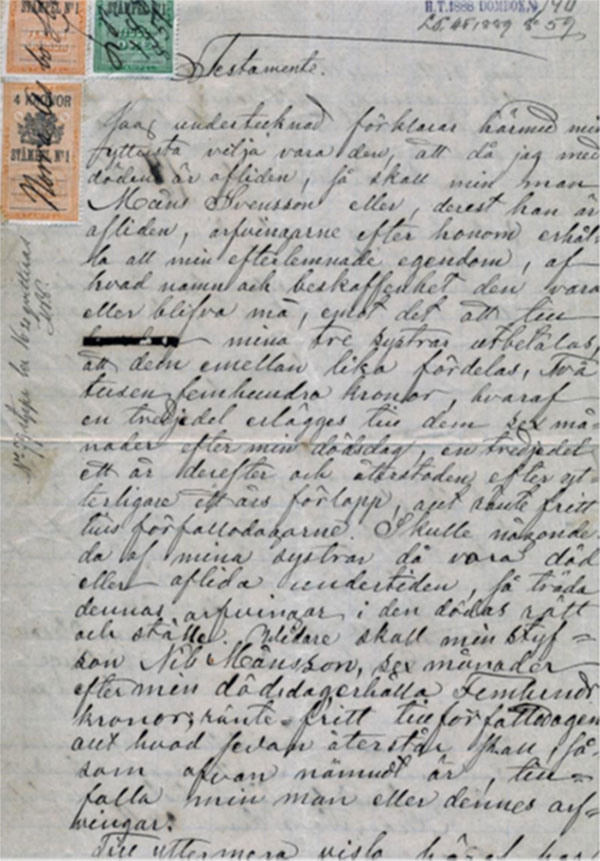 H.T. 1888 DOMBOK N
STÄMPEL Nº 1
STÄMPEL Nº 1
4 KRONOR
STÄMPEL Nº 1
Testamente.
Jaag undertecknad förklarar härmed min
yttersta vilja vara den, att då jag med
döden är afliden, så skall min man
Måns Svensson eller, derest han är
afliden, arfvingarne efter honom erhål-
la all min efterlemnade egendom, af
hvad namn och beskaffenhet den vara
eller blifva må, emot det att till
mina tre systrar utbetalas,
att dem emellan lika fördelas, Två
tusen femhundra kronor, hvaraf
en tredjedel erlägges till dem sex må-
nader efter min dödsdag, en tredjedel
ett år derefter och återstoden efter yt-
terligare ett års förlopp, allt ränte fritt
tills förfallodagarne. Skulle någonde-
da af mina systrar då vara död
eller aflida under tiden, så träda
dennas arfvingar i den dödas rätt
och ställe. Vidare skall min styf-
son Nils Månsson, sex månader
efter min dödsdag erhålla Femhundra
kronor, ränte-fritt till förfallodagen
allt hvad sedan återstår skall, så-
som ofvan nämndt är, till-
falla min man eller dennes arf-
vingar.
Till yttermera visso